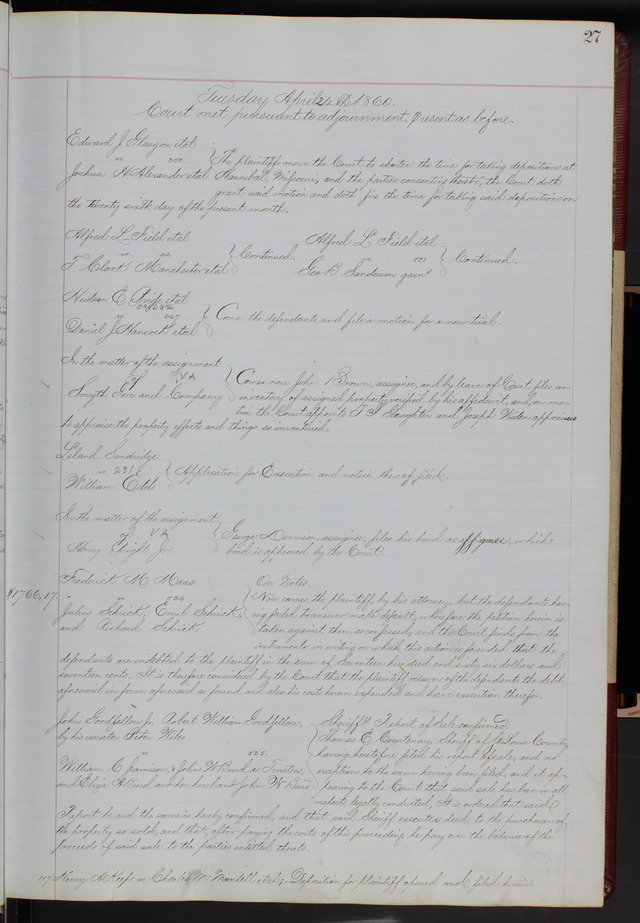 27
Tuesday April 24 AD 1860.
Court met pursuant to adjournment, Present as before.
Edward J. Glasgow etal
vs
Joshua H. Alexander etal
The plaintiffs move the Court to shorten the time for taking depositions at
Hannibal Missouri, and the parties consenting thereto, the Court doth
grant said motion and doth fix the time for taking said depositions on
the twenty sixth day of the present month.
Alfred L. Field etal
vs
T Clark Manchester etal
Continued.
Alfred L. Field etal
vs
Geo B Sanderson garn
Continued.
Hudson E. etal
vs
Daniel J Hancock etal
Come the defendants and file a motion for a new trial.
In the matter of the assignment
of
Smyth Gore and Company
Comes now John Brown, assignee, and by leave of Court files an
inventory of assigned property verified by his affidavit, and, on mo-
tion the Court appoints T S Slaughter and Joseph appraisers
to appraise the property effects and things so inventoried.
Leland Sandridge
vs 231
William Edds
Application for Execution and notice thereof filed.
In the matter of the assignment
of
Henry Jr
George Dennison, assignee, files his bond as assignee, which
bond is approved by the Court.
$1766,17
Frederick M. Maas
vs
Julius Schrick, Emil Schrick
and Richard Schrick
On Note.
Now comes the plaintiff, by his attorney but the defendants hav-
ing failed to answer make default, wherefore the petition herein is
taken against them, as confessed; and the Court finds from the
instrument in writing on which this action is founded that the
defendants are indebted to the plaintiff in the sum of Seventeen hundred and sixty six dollars and
seventeen cents. It is therefore considered by the Court that the plaintiff recover of the defendants the debt
aforesaid in form aforesaid as found and also his costs herein expended and have execution therefor.
John Goodfellow Jr, Robert William Goodfellow,
by his curator Peter Wiles
vs 525.
William C Jamison & John W Burd as Trustees,
and Eliza A Burd and her husband John W Burd
Sheriff's Report of Sale confirmed.
James E. Courtenay Sheriff of St Louis County
having heretofore filed his report of sale, and no
exceptions to the same having been filed, and it ap-
pearing to the Court that said sale has been in all
respects legally conducted, It is ordered that said
Report be and the same is hereby confirmed, and that said Sheriff execute a deed to the purchaser of
the property so sold, and that, after paying the costs of this proceeding he pay over the balance of the
proceeds of said sale to the parties entitled thereto.
117 Henry A. vs Charles M. etal; Deposition for plaintiff opened and filed herein.